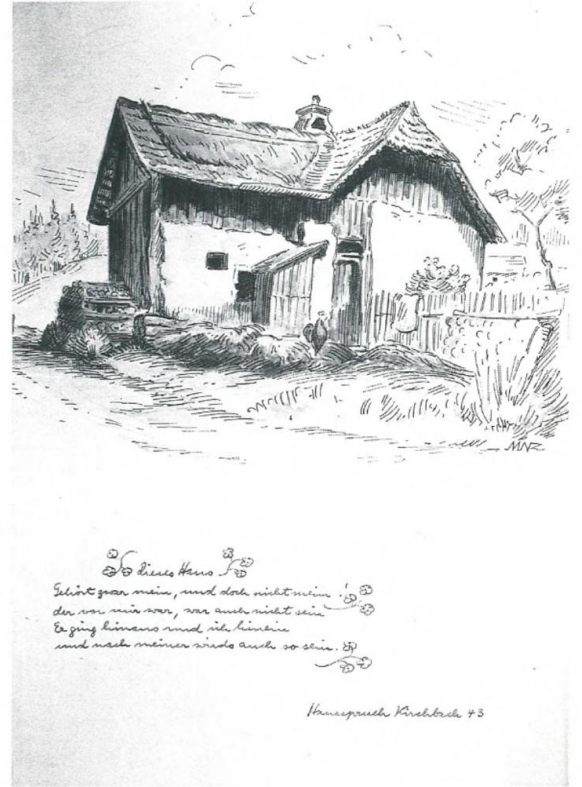 MNZ
dieses Haus
Gehört zwar mein, und doch nicht mein!
der vor mir war, war auch nicht sein
Er ging hinaus und ich hinein
und nach meiner wirds auch so sein.
Hausspruch Kirchbach 43